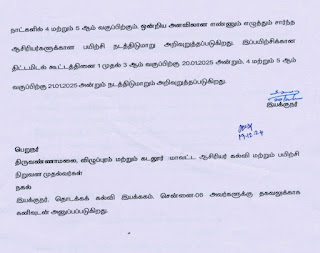 நாட்களில் 4 மற்றும் 5 ஆம் வகுப்பிற்கும், ஒன்றிய அளவிலான எண்ணும் எழுத்தும் சார்ந்த
ஆசிரியர்களுக்கான பயிற்சி நடத்திடுமாறு அறிவுறுத்தப்படுகிறது. இப்பயிற்சிக்கான
திட்டமிடல் கூட்டத்தினை 1 முதல் 3 ஆம் வகுப்பிற்கு 20.01.2025 அன்றும், 4 மற்றும் 5 ஆம்
வகுப்பிற்கு 21.01.2025 அன்றும் நடத்திடுமாறும் அறிவுறுத்தப்படுகிறது.
இயக்குநர்
19.12.24
பெறுநர்
திருவண்ணாமலை, விழுப்புரம் மற்றும் கடலூர் மாவட்ட ஆசிரியர் கல்வி மற்றும் பயிற்சி
நிறுவன முதல்வர்கள்
நகல்
இயக்குநர், தொடக்கக் கல்வி இயக்ககம், சென்னை.06 அவர்களுக்கு தகவலுக்காக
கனிவுடன் அனுப்பப்படுகிறது.